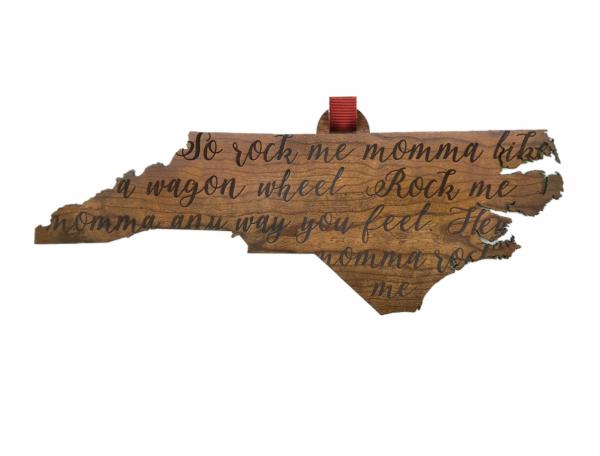 So rock me momma like
a wagon wheel. Rock me
momma any way you feel. Hey
momma rock
me